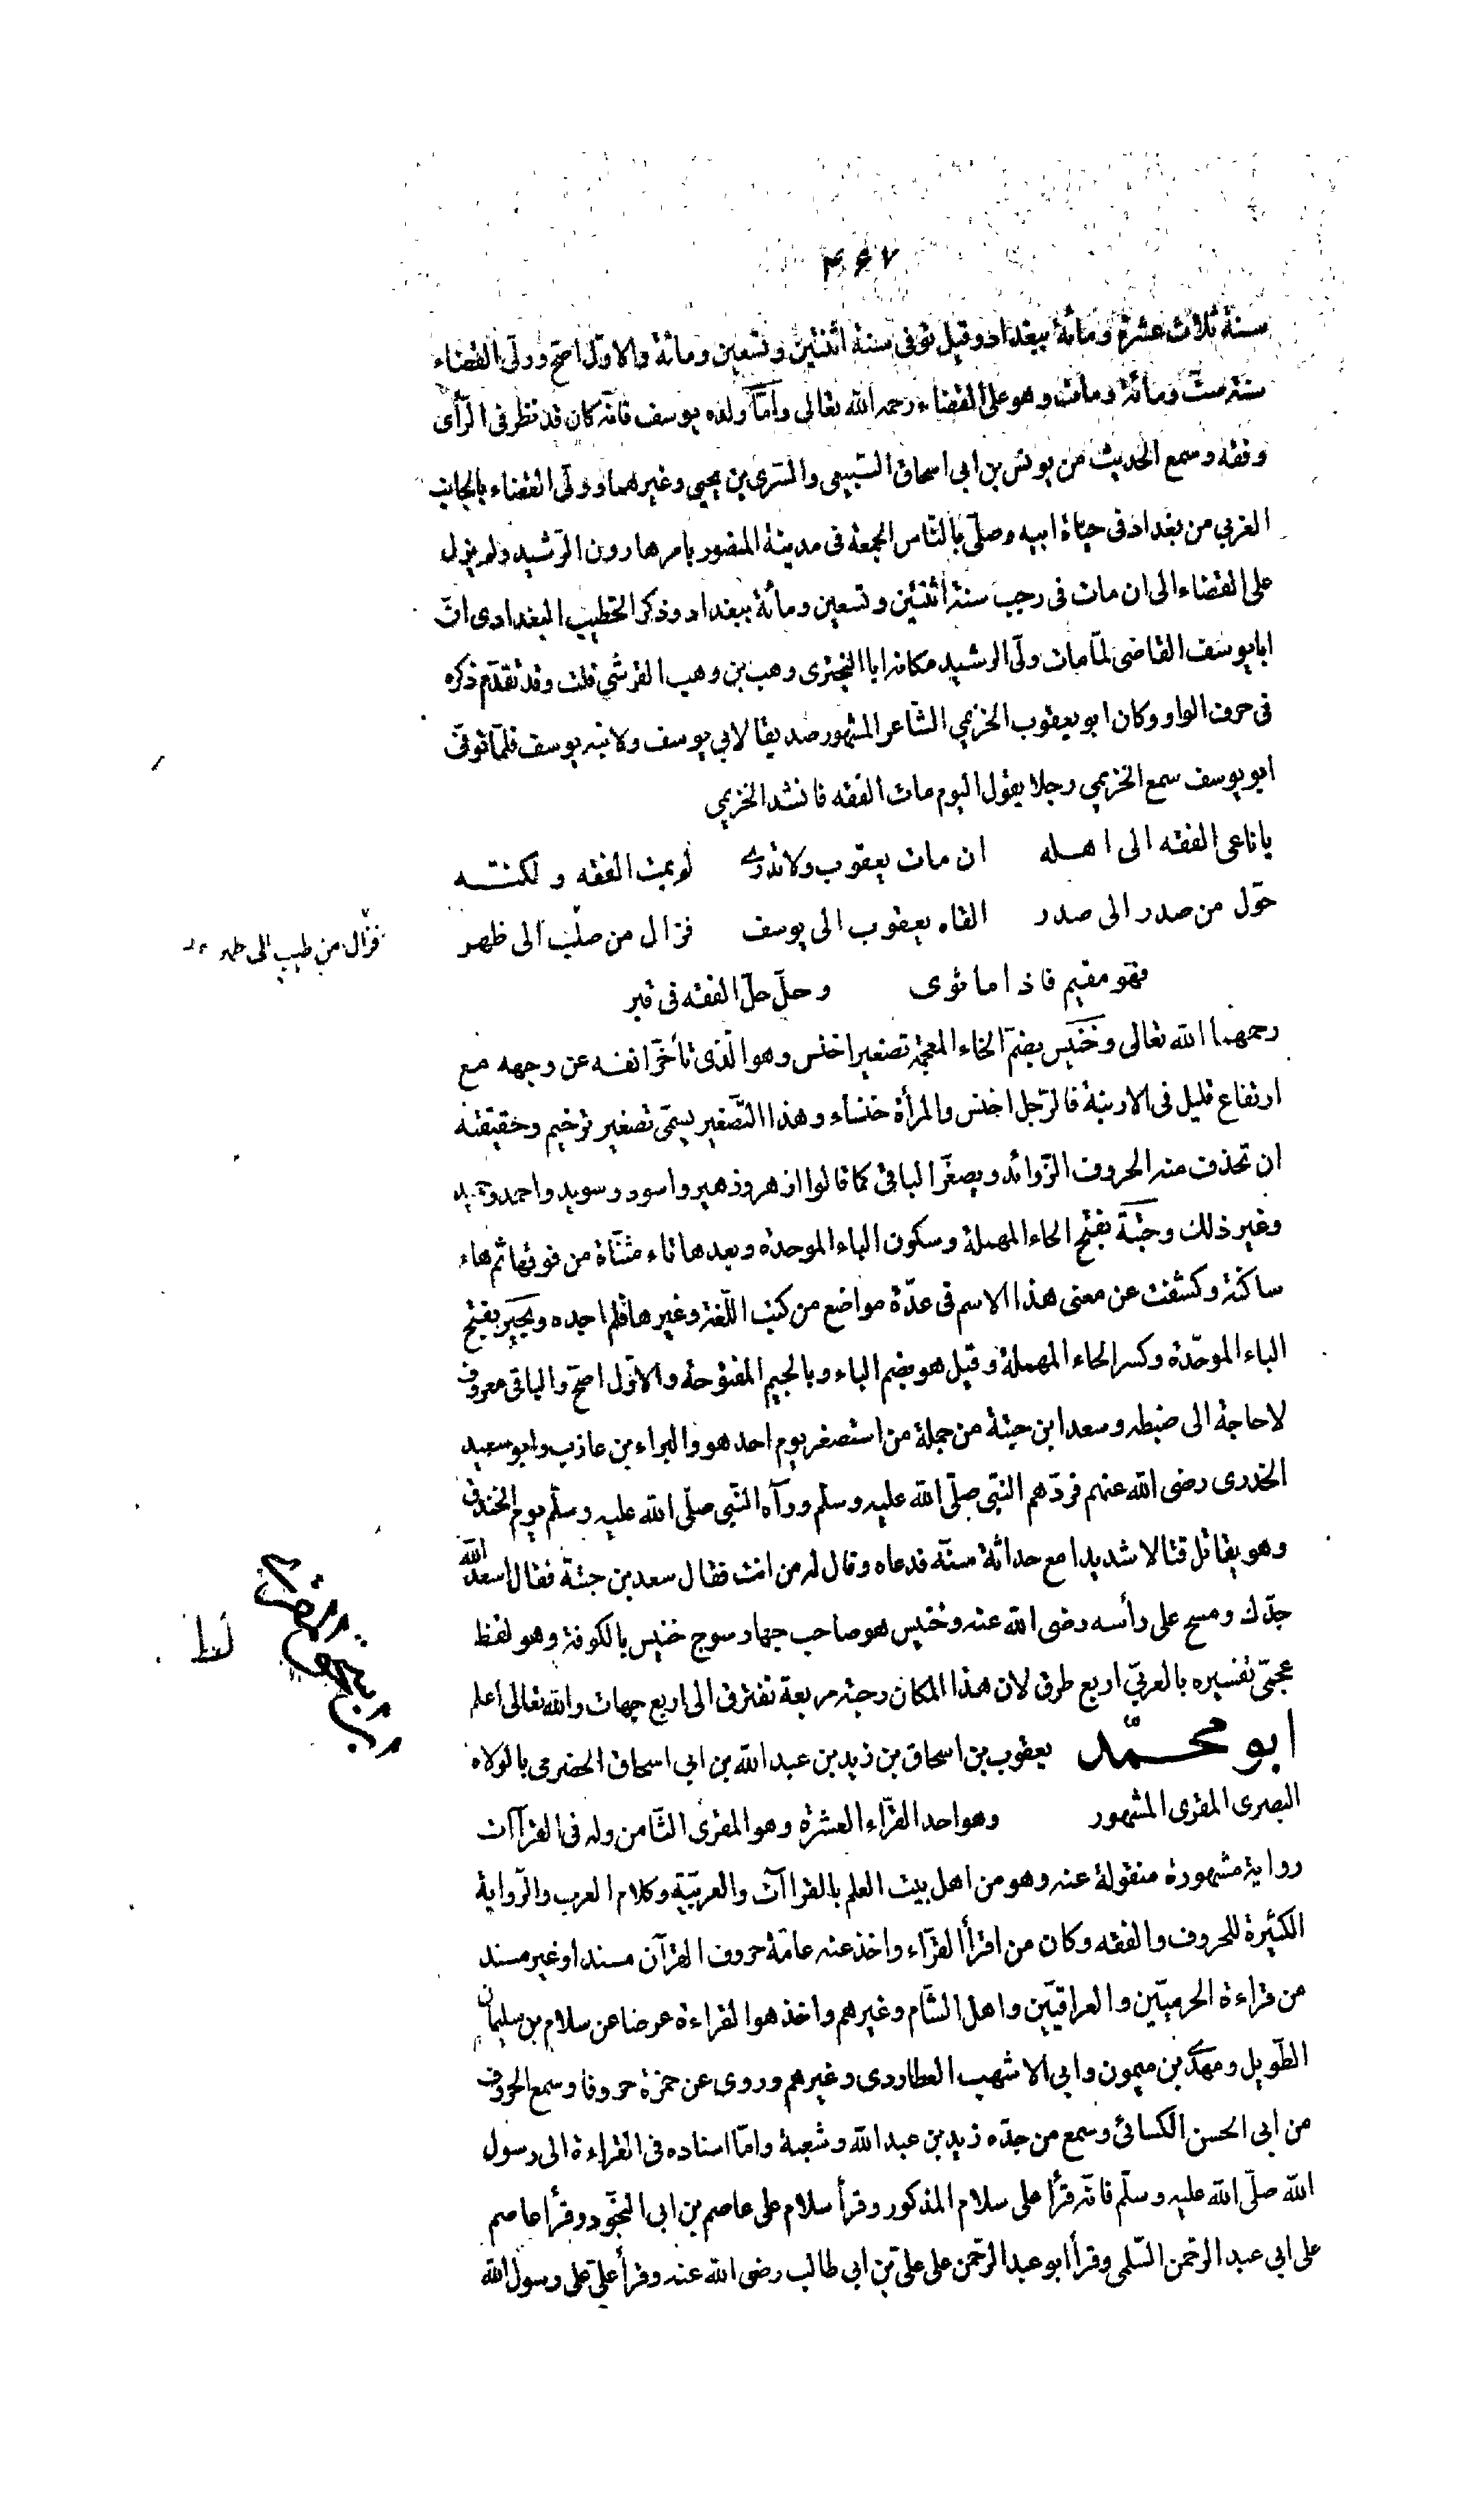 ٤٦٧
سنة ثلاث عشرة ومائة ببغداد وقيل توفى سنة اثنتين وتسعين ومائة والاوّل اصحّ وولّى القضاء
سنة ستّ ومائة ومات وهو على القضاء رحمه الله تعالى وامّا ولده يوسف فانّه كان قد نظر فى الرّأى
وفقه وسمع الحديث من يونس بن ابى اسحاق السّبيعى والسّرى بن يحيى وغيرهما وولّى القضاء بالجانب
الغربي من بغداد فى حياة ابيه وصلّى بالنّاس الجمعة فى مدينة المنصور بامر هارون الرّشيد ولم يزل
على القضاء الى ان مات فى رجب سنة اثنتين وتسعين ومأئة ببغداد وذكر الخطيب البغدادى انّ
ابا يوسف القاضى لمّا مات ولّى الرشيد مكانه ابا البخترى وهب بن وهب القرشي قلت وقد تقدّم ذكره
فى حرف الواو وكان ابو يعقوب الخزيمي الشّاعر المشهور صديقا لابي يوسف ولابنه يوسف فلمّا توفّى
ابو يوسف سمع الخزيمي رجلا يقول اليوم مات الفقه فانشد الخزيمي
يا ناعى الفقه الى اهله ان مات يعقوب ولا تدرى لم يمت الفقه ولكنّه
حوّل من صدر الى صدر القاه يعقوب الى يوسف فزال من صلب الى ظهر
فزال من طيب الى طهر
فهو مقيم فاذا ما ثوى وحلّ حلّ الفقه فى قبر
رحمهما الله تعالى وخنيس بضمّ الخاء المعجمة تصغير اخنس وهو الّذى تأخّر انفه عن وجهه مع
ارتفاع قليل فى الارنبة فالرّجل اخنس والمرأة خنساء وهذا التّصغير يسمّى تصغير ترخيم وحقيقته
ان تحذف منه الحروف الزّوائد ويصغّر الباقى كما قالوا ازهر وزهير واسود وسويد واحمد وحميد
وغير ذلك وحبتة بفتح الحاء المهملة وسكون الباء الموحدة وبعدها تاء مثنّاة من فوقها ثم هاء
ساكنة وكشفت عن معنى هذا الاسم فى عدّة مواضع من كتب اللّغة وغيرها فلم اجده وبحير بفتح
الباء الموحّدة وكسر الحاء المهملة وقيل هو بضم الباء وبالجيم المفتوحة والاوّل اصحّ والباقى معروف
لا حاجة الى ضبطه وسعد ابن حبتة من جملة من استصغر يوم احد هو والبراء بن عازب وابو سعيد
الخدرى رضى الله عنهم فردّهم النبّي صلّى الله عليه وسلم ورآه النّبي صلّى الله عليه وسلّم يوم الخندق
وهو يقاتل قتالا شديدا مع حداثة سنّه فدعاه وقال له من انت فقال سعد بن حبتة فقال اسعد الله
جدّك ومسح على رأسه رضى الله عنه وخنيس هو صاحب جهار سوج خنيس بالكوفة وهو لفظ
عجمّي تفسيره بالعربيّ اربع طرق لان هذا المكان رحبة مربعة تفترق الى اربع جهات والله تعالى اعلم
ابو محمّد يعقوب بن اسحاق بن زيد بن عبد الله بن ابي اسحاق الحضرمى بالولاء
البصرى المقرى المشهور وهو احد القرّاء العشرة وهو المقرى الثّامن وله فى القرآات
رواية مشهورة منقولة عنه وهو من اهل بيت العلم بالقرآات والعربيّة وكلام العرب والرّواية
الكثيرة للحروف والفقه وكان من اقرأ القرّاء واخذ عنه عامّة حروف القرآن مسندا وغير مسند
من قراءة الحرميّين والعراقيّين واهل الشّام وغيرهم واخذ هو القراءة عرضا عن سلام بن سليمان
الطّويل ومهدى بن ميمون وابي الاشهب العطاردى وغيرهم وروى عن حمزة حروفا وسمع الحروف
من ابى الحسن الكسائى وسمع من جدّه زيد بن عبد الله وشعبة وامّا اسناده فى القراءة الى رسول
الله صلّى الله عليه وسلّم فانّه قرأ على سلام المذكور وقرأ سلام على عاصم بن ابى النجّود وقرأ عاصم
على ابي عبد الرحمن السّلمى وقرأ ابو عبد الرّحمن على علىّ بن ابي طالب رضى الله عنه وقرأ علىّ على رسول الله